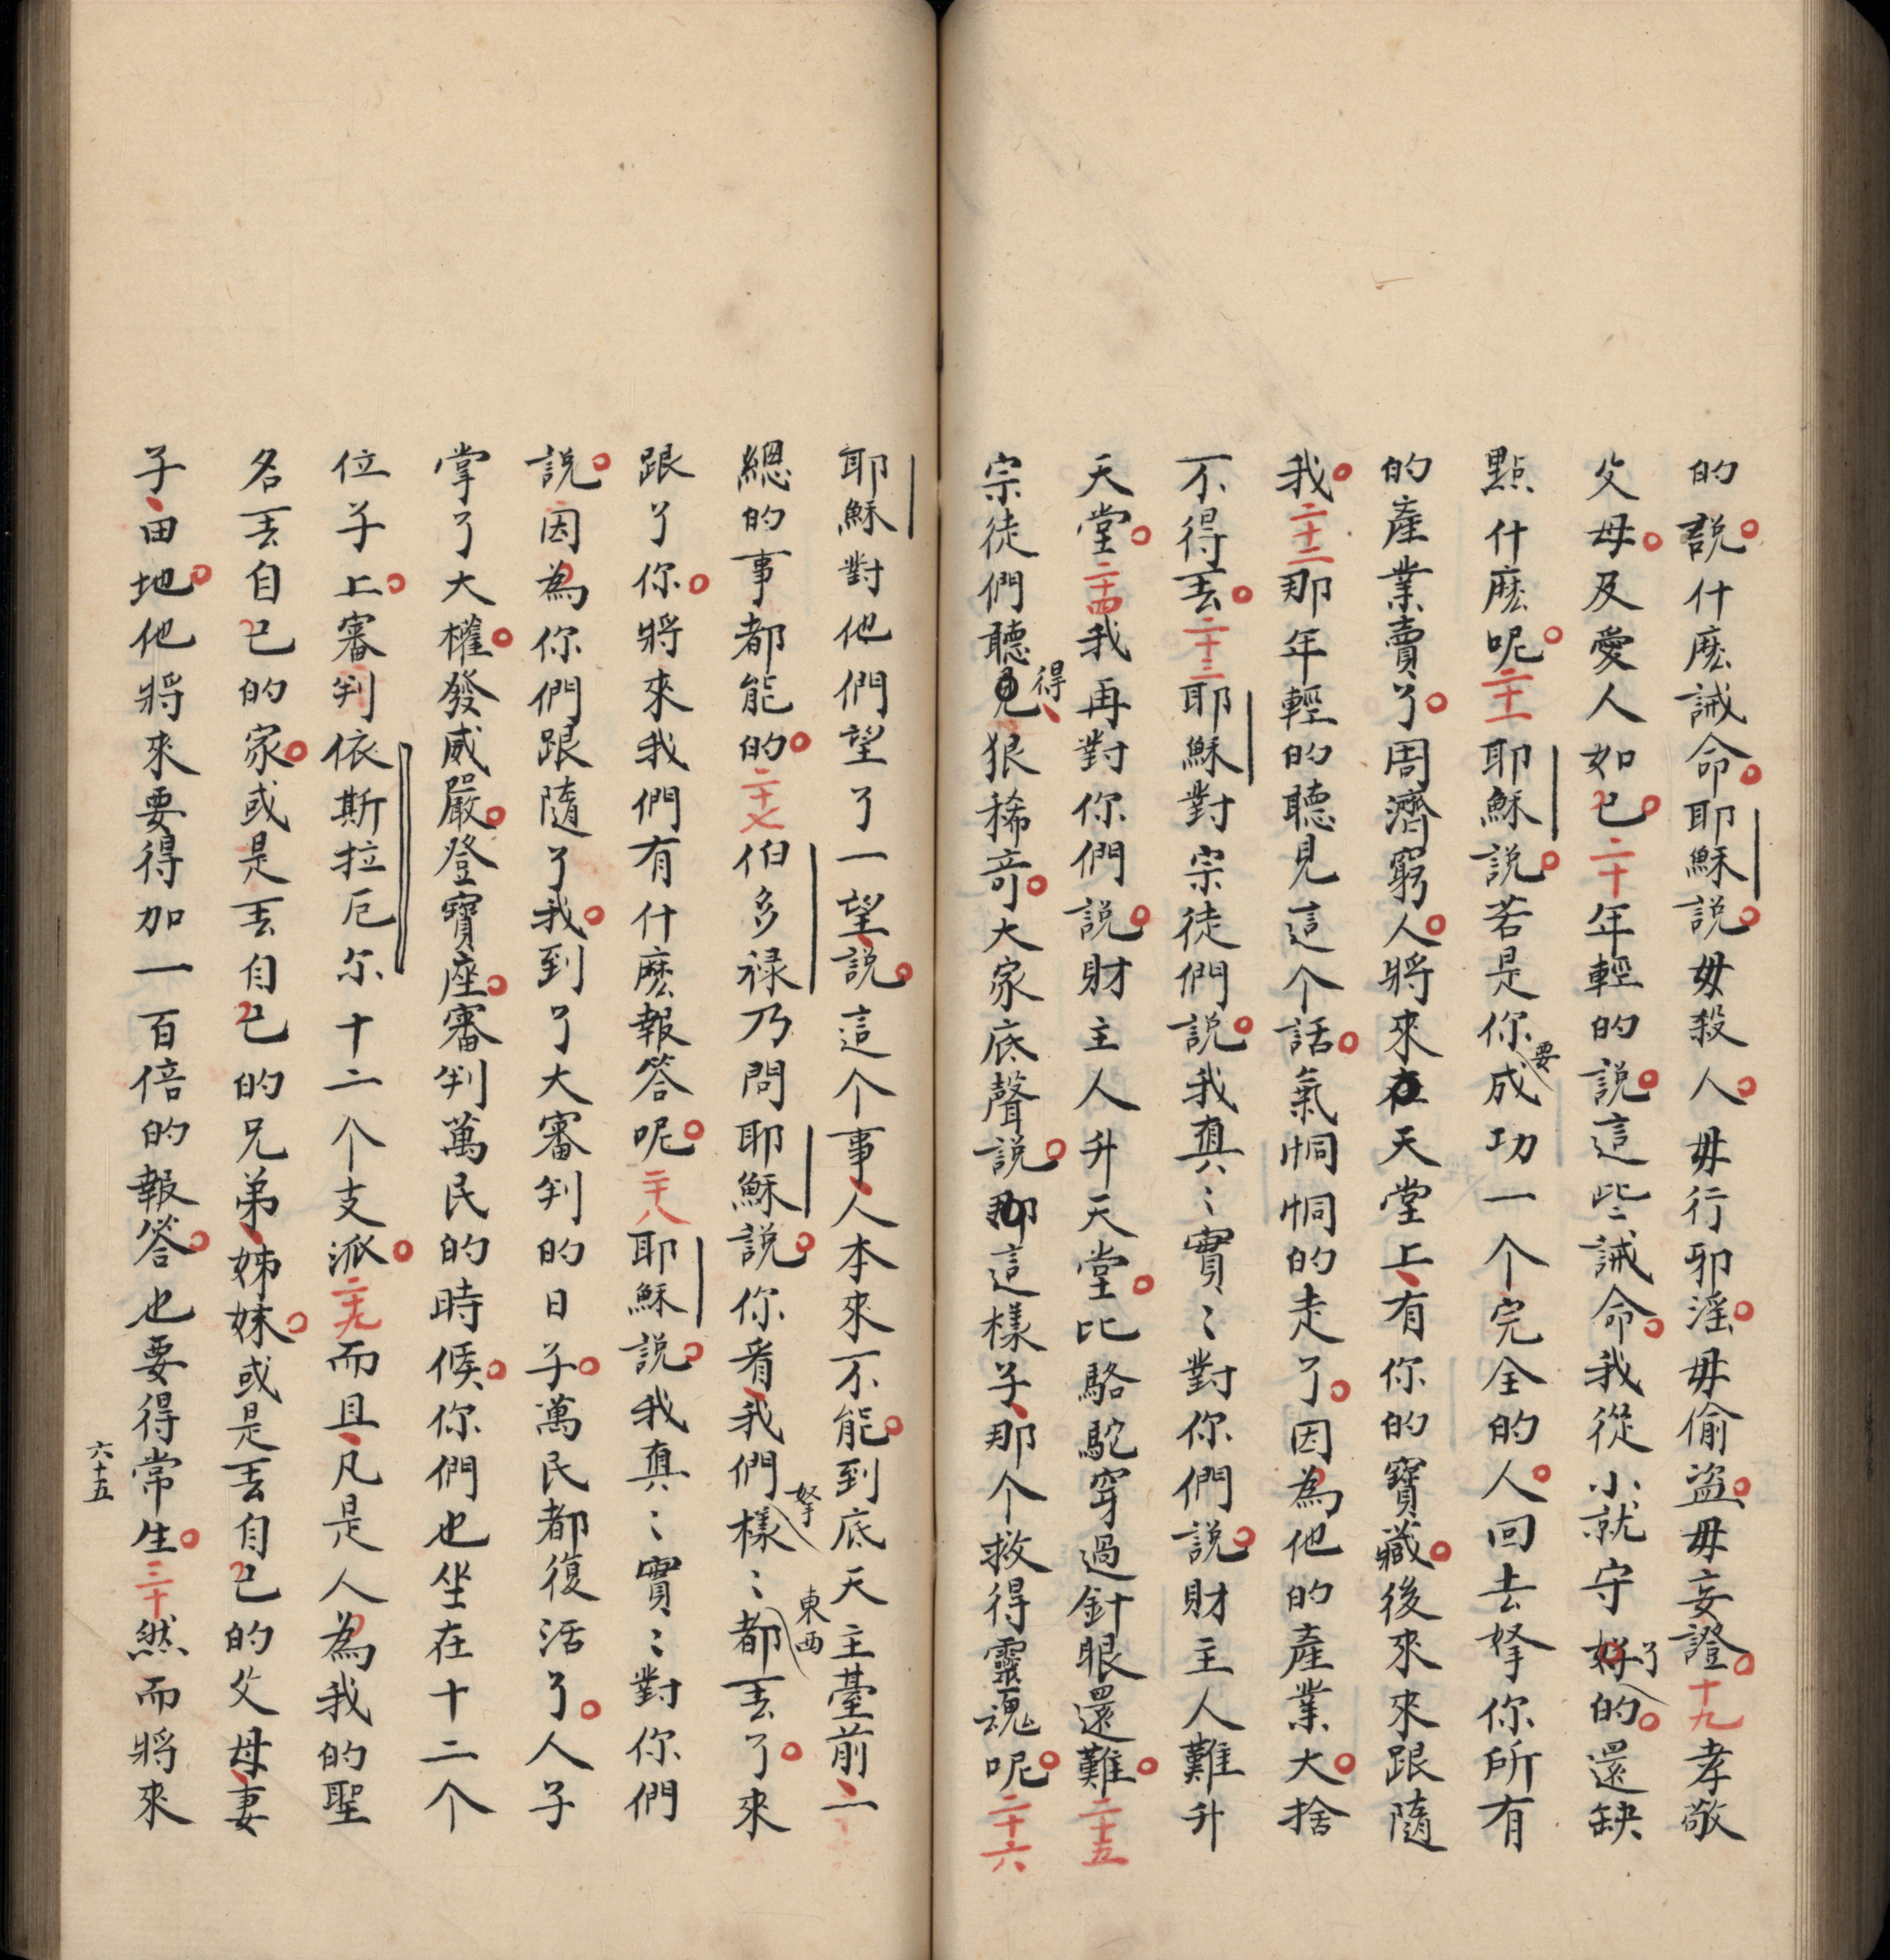 的説什麽誡命耶穌説毋殺人毋行邪淫毋偷盗毋妄證十九孝敬
父母及愛人如已二十年輕的説這些誡命我從小就守了的還缺
點什麽呢二十一耶穌説若是你要成功一个完全的人回去拏你所有
的產業賣了周濟窮人將來在天堂上有你的寶藏後來來跟隨
我二十二那年輕的聽見這个話氣恫恫的走了因為他的產業大捨
不得丟二十三耶穌對宗徒們説我真〻實〻對你們説財主人難升
天堂二十四我再對你們説財主人升天堂比駱駝穿過針眼還難二十五
宗徒們聽得狠稀奇大家底聲説這樣子那个救得靈魂呢二十六
耶穌對他們望了一望説這个事人本來不能到底天主臺前一
總的事都能的二十七伯多禄乃問耶穌説你看我們拏樣〻東西都丟了來
跟了你將來我們有什麽報答呢二十八耶穌説我真〻實〻對你們
説因為你們跟隨了我到了大審判的日子萬民都復活了人子
掌了大權發威嚴登寶座審判萬民的時候你們也坐在十二个
位子上審判依斯拉厄尔十二个支派二十九而且凡是人為我的聖
名丟自已的家或是丟自已的兄弟姊妹或是丟自已的父母妻
子田地他將來要得加一百倍的報答也要得常生三十然而將來
六十五